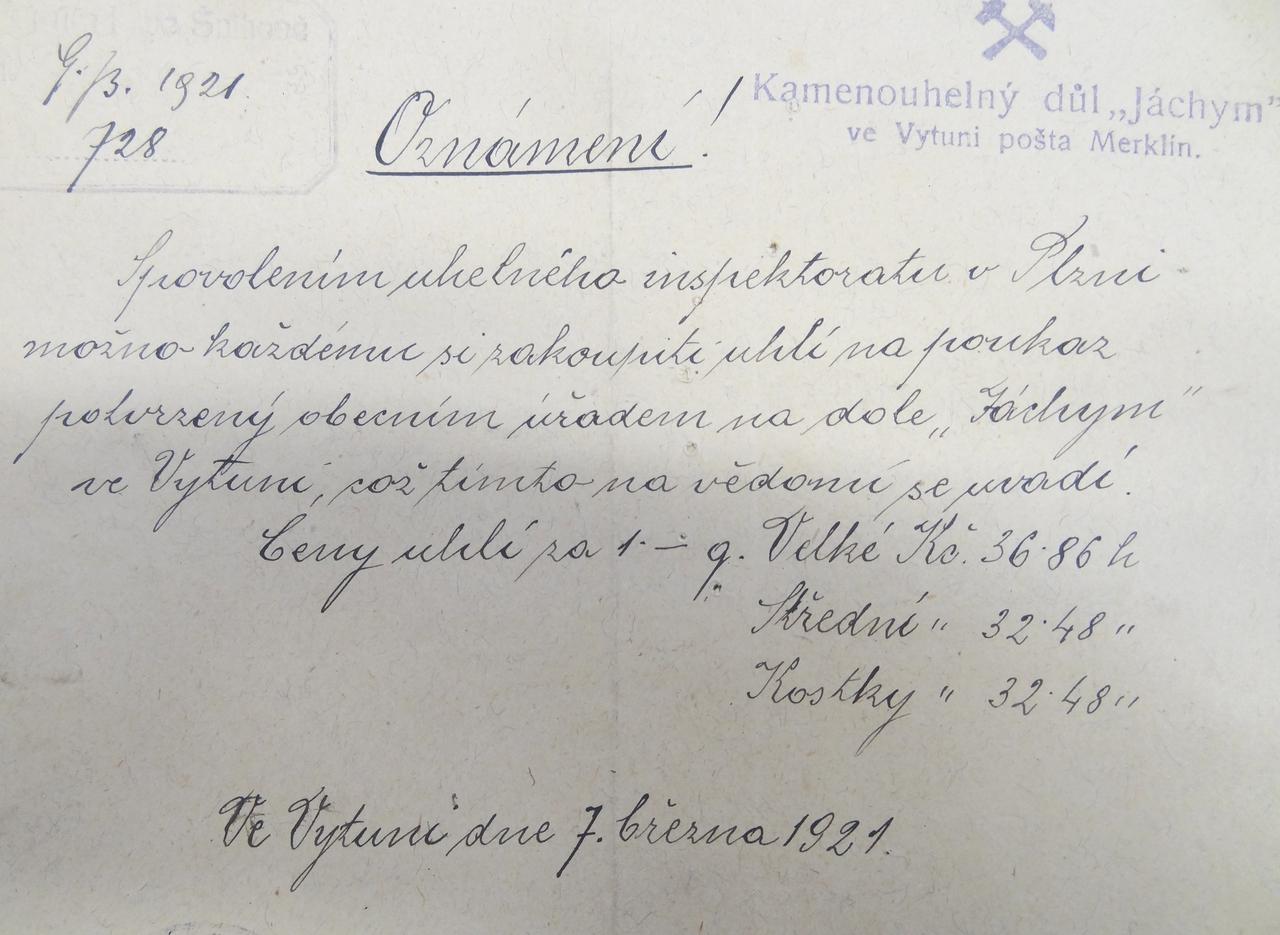 9./3. 1921.
728
Kamenouhelný důl „Jáchym"
ve Vytuni pošta Merklín.
Oznámení!
S povolením uhelného inspektoratu v Plzni
možno každému si zakoupiti uhlí na poukaz
potvrzený obecním úřadem na dole „Jáchym"
ve Vytuni, což tímto na vědomí se uvadí.
Ceny uhlí za 1·– q. Velké Kč. 36·86 h
Střední " 32·48 "
Kostky " 32·48 "
Ve Vytuni dne 7. března 1921.